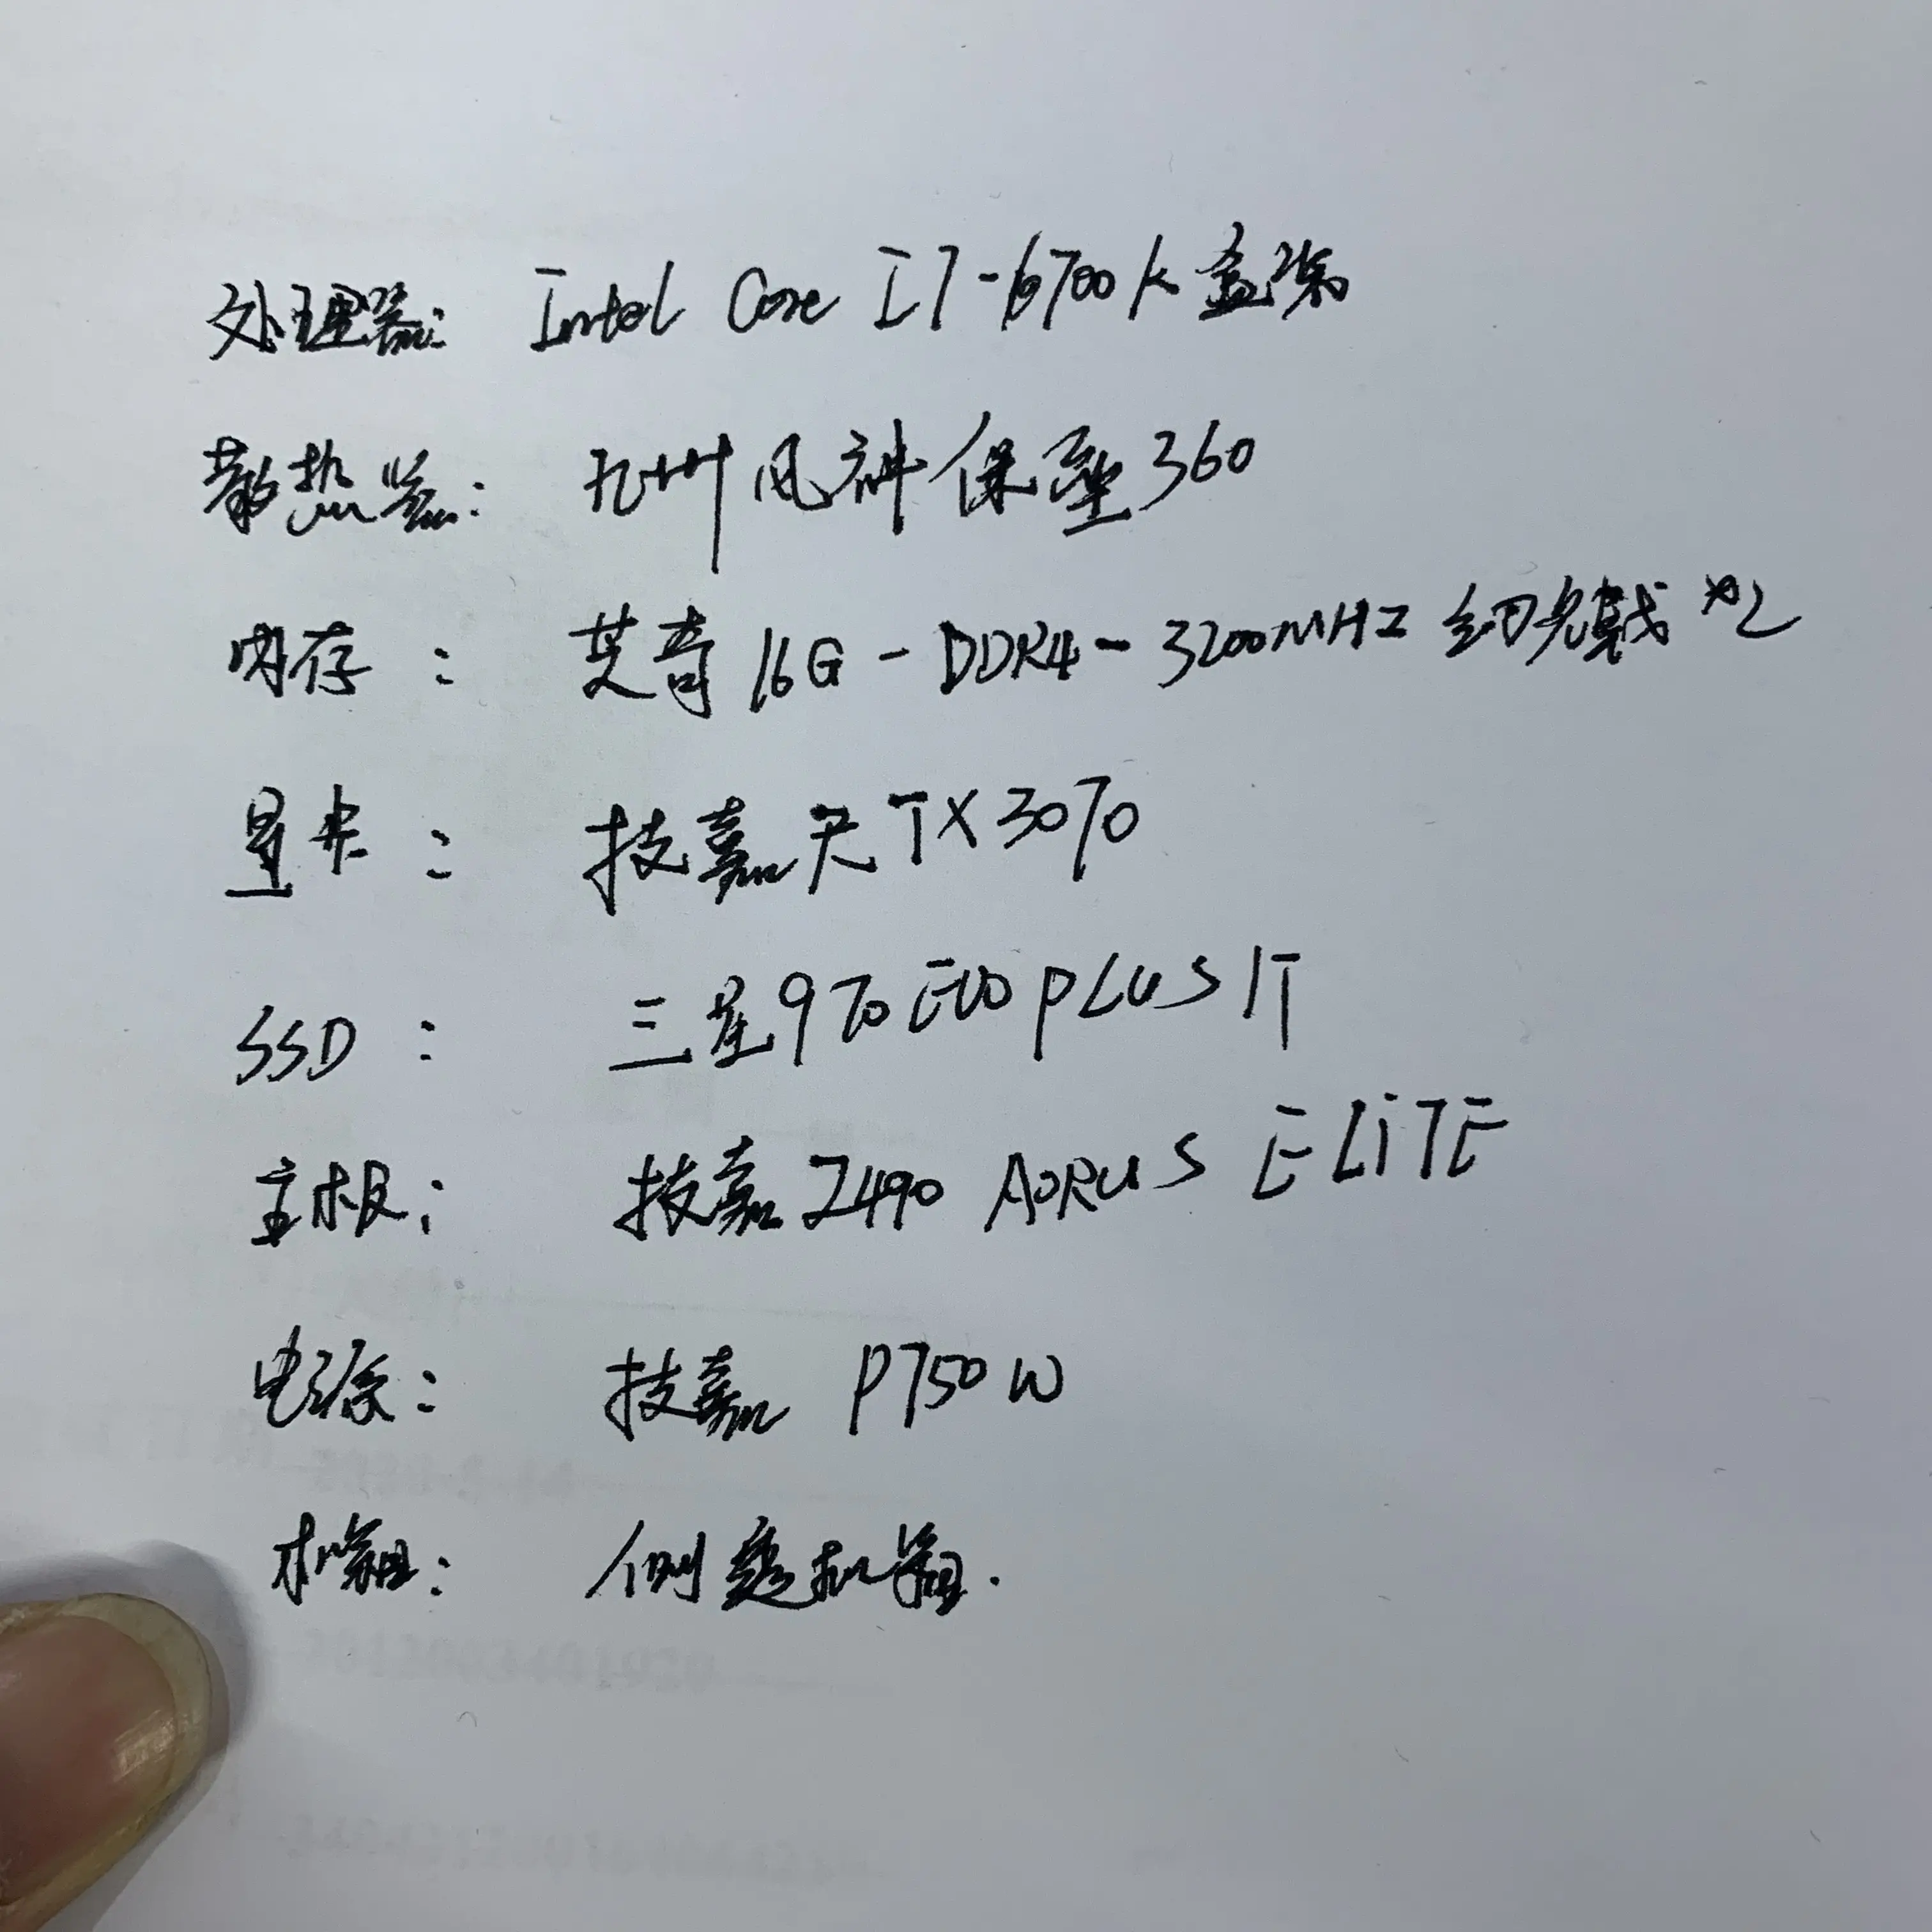 处理器: Intel Core I7-6700K 盒装
散热器: 九州风神保垒360
内存: 芝奇16G-DDR4-3200MHZ 幻光戟 *2
显卡: 技嘉 RTX3070
SSD: 三星970 EVO PLUS 1T
主板: 技嘉Z490 AORUS ELiTE
电源: 技嘉 P750W
机箱: 侧透机箱.